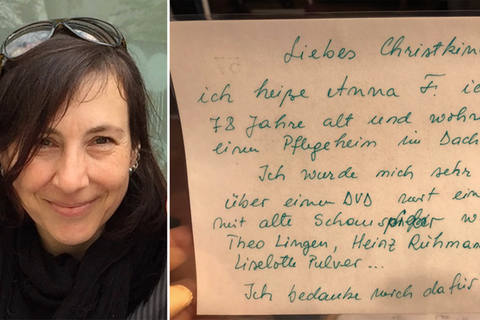 Liebes Christkin
ich heiße Anna F. ic
78 Jahre alt und wohn
einem Pflegeheim im Dach
Ich wurde mich sehr
über einen DVD mit ein
mit alte Schauspieler w
Theo Lingen, Heinz Rühman
Liselotte Pulver ...
Ich bedanke mich dafür